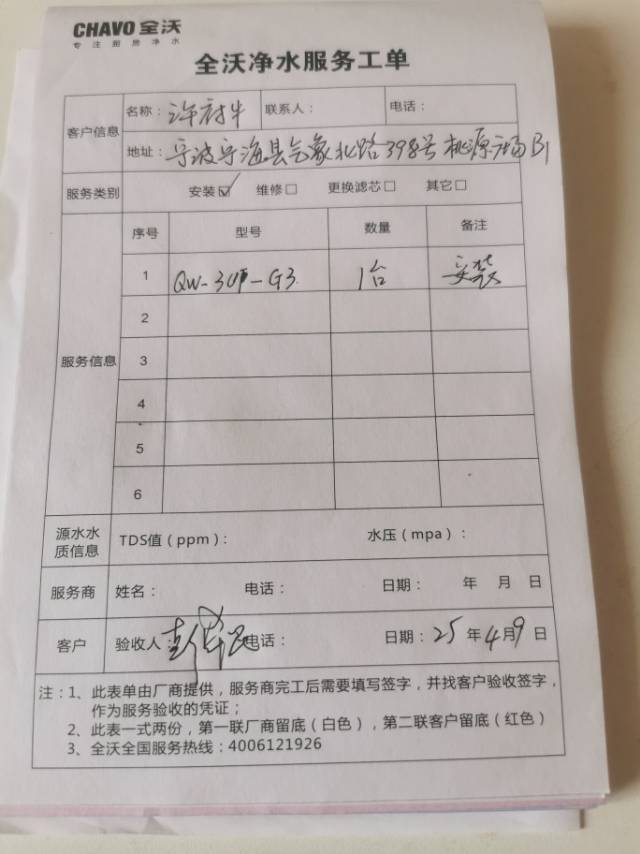 CHAVO 全沃
专注厨房净水
全沃净水服务工单
客户信息
名称：许府牛 联系人： 电话：
地址：宁波宁海县气象北路398号桃源广场B1
服务类别 安装☑ 维修□ 更换滤芯□ 其它□
服务信息
序号 型号 数量 备注
1 QW-3UF-G3 1台 安装
2
3
4
5
6
源水水质信息
TDS值（ppm）： 水压（mpa）：
服务商 姓名： 电话： 日期： 年 月 日
客户 验收人： 电话： 日期：25年4月9日
注：1、此表单由厂商提供，服务商完工后需要填写签字，并找客户验收签字，
作为服务验收的凭证；
2、此表一式两份，第一联厂商留底（白色），第二联客户留底（红色）
3、全沃全国服务热线：4006121926